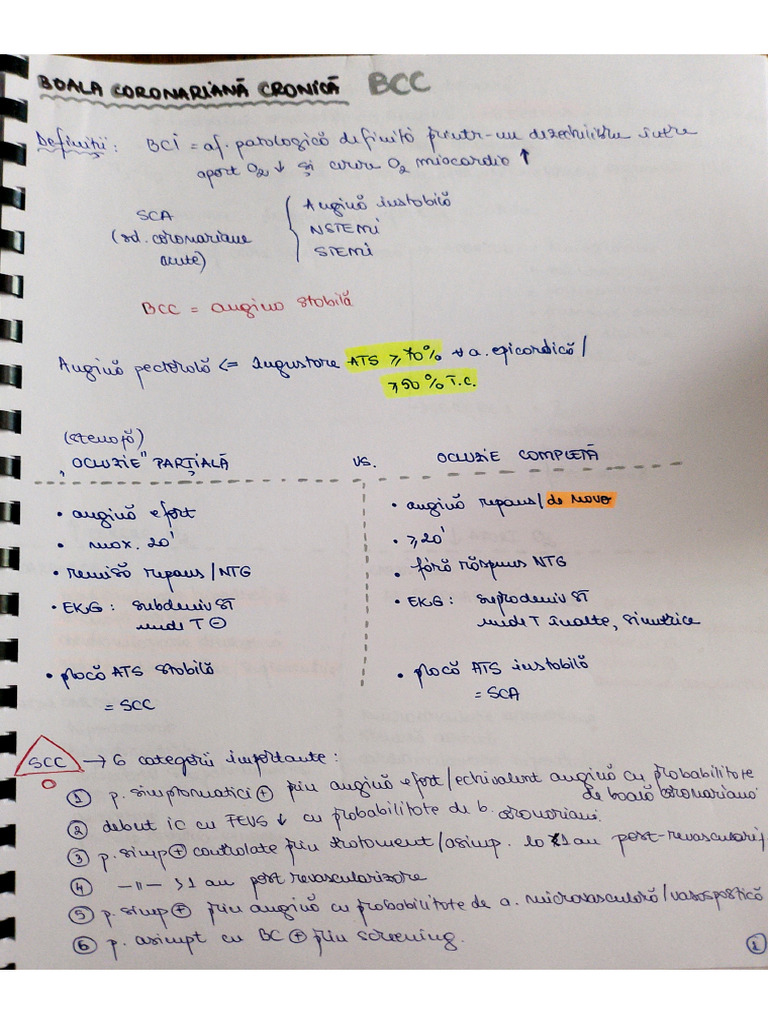 BOALA CORONARIANĂ CRONICĂ BCC
Definiții: BCI = af. patologică definită printr-un dezechilibru între
aport O2 ↓ și cerere O2 miocardic ↑
SCA { Angină instabilă
(sd. coronariene NSTEMI
acute) STEMI
BCC = angina stabilă
Angină pectorală <= îngustare ATS ≥70% a. epicardică/
≥50% T.C.
(stenoză)
"OCLUZIE" PARȚIALĂ vs. OCLUZIE COMPLETĂ
• angină efort • angină repaus/de novo
• max. 20' • ≥20'
• remisă repaus/NTG • fără răspuns NTG
• EKG: subdeniv ST • EKG: supradeniv ST
unde T ⊖ unde T înalte, simetrice
• placă ATS stabilă • placă ATS instabilă
= SCC = SCA
SCC → 6 categorii importante:
① p. simptomatici ⊕ prin angină efort/echivalent angină cu probabilitate
de boală coronariană
② debut IC cu FEVS ↓ cu probabilitate de b. coronariană.
③ p. simp ⊕ controlate prin tratament/asimp. la <1 an post-revasculariz
④ —"— >1 an post revascularizare
⑤ p. simp ⊕ prin angină cu probabilitate de a. microvasculară/vasospastică
⑥ p. asimpt cu BC ⊕ prin screening.
1